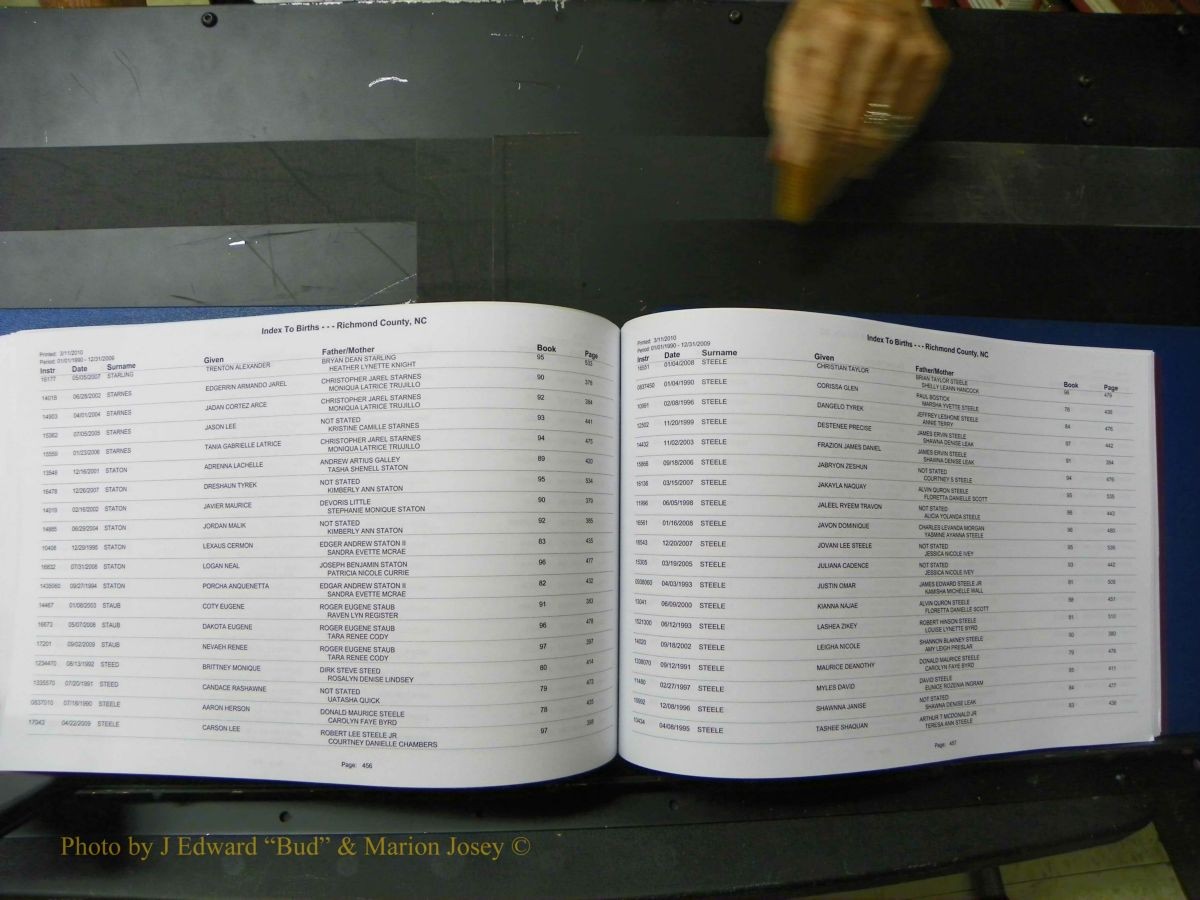 Index To Births - - - Richmond County, NC
Printed: 3/11/2010
Period: 01/01/1990 - 12/31/2009
Instr Date Surname Given Father/Mother Book Page
16177 05/05/2007 STARLING TRENTON ALEXANDER BRYAN DEAN STARLING 95 533
HEATHER LYNETTE KNIGHT
14018 06/28/2002 STARNES EDGERRIN ARMANDO JAREL CHRISTOPHER JAREL STARNES 90 378
MONIQUA LATRICE TRUJILLO
14903 04/01/2004 STARNES JADAN CORTEZ ARCE CHRISTOPHER JAREL STARNES 92 384
MONIQUA LATRICE TRUJILLO
15362 07/05/2005 STARNES JASON LEE NOT STATED 93 441
KRISTINE CAMILLE STARNES
15559 01/23/2006 STARNES TANIA GABRIELLE LATRICE CHRISTOPHER JAREL STARNES 94 475
MONIQUA LATRICE TRUJILLO
13549 12/16/2001 STATON ADRENNA LACHELLE ANDREW ARTIUS GALLEY 89 420
TASHA SHENELL STATON
16478 12/26/2007 STATON DRESHAUN TYREK NOT STATED 95 534
KIMBERLY ANN STATON
14019 02/16/2002 STATON JAVIER MAURICE DEVORIS LITTLE 90 379
STEPHANIE MONIQUE STATON
14885 06/29/2004 STATON JORDAN MALIK NOT STATED 92 385
KIMBERLY ANN STATON
10408 12/29/1995 STATON LEXAUS CERMON EDGER ANDREW STATON II 83 435
SANDRA EVETTE MCRAE
16632 07/31/2008 STATON LOGAN NEAL JOSEPH BENJAMIN STATON 96 477
PATRICIA NICOLE CURRIE
1435060 09/27/1994 STATON PORCHA ANQUENETTA EDGAR ANDREW STATON II 82 432
SANDRA EVETTE MCRAE
14467 01/08/2003 STAUB COTY EUGENE ROGER EUGENE STAUB 91 383
RAVEN LYN REGISTER
16673 05/07/2008 STAUB DAKOTA EUGENE ROGER EUGENE STAUB 96 478
TARA RENEE CODY
17201 09/02/2009 STAUB NEVAEH RENEE ROGER EUGENE STAUB 97 397
TARA RENEE CODY
1234470 08/13/1992 STEED BRITTNEY MONIQUE DIRK STEVE STEED 80 414
ROSALYN DENISE LINDSEY
1335570 07/20/1991 STEED CANDACE RASHAWNE NOT STATED 79 473
UATASHA QUICK
0837010 07/18/1990 STEELE AARON HERSON DONALD MAURICE STEELE 78 435
CAROLYN FAYE BYRD
17042 04/22/2009 STEELE CARSON LEE ROBERT LEE STEELE JR 97 398
COURTNEY DANIELLE CHAMBERS
Page: 456
Index To Births - - - Richmond County, NC
Printed: 3/11/2010
Period: 01/01/1990 - 12/31/2009
Instr Date Surname Given Father/Mother Book Page
16551 01/04/2008 STEELE CHRISTIAN TAYLOR BRIAN TAYLOR STEELE 96 479
SHELLY LEANN HANCOCK
0837450 01/04/1990 STEELE CORISSA GLEN PAUL BOSTICK 78 436
MARSHA YVETTE STEELE
10991 02/08/1996 STEELE DANGELO TYREK JEFFREY LESHONE STEELE 84 476
ANNIE TERRY
12502 11/20/1999 STEELE DESTENEE PRECISE JAMES ERVIN STEELE 87 442
SHAWNA DENISE LEAK
14432 11/02/2003 STEELE FRAZION JAMES DANIEL JAMES ERVIN STEELE 91 384
SHAWNA DENISE LEAK
15866 09/18/2006 STEELE JABRYON ZESHUN NOT STATED 94 476
COURTNEY S STEELE
16136 03/15/2007 STEELE JAKAYLA NAQUAY ALVIN QURON STEELE 95 535
FLORETTA DANIELLE SCOTT
11996 06/05/1998 STEELE JALEEL RYEEM TRAVON NOT STATED 86 443
ALICIA YOLANDA STEELE
16561 01/16/2008 STEELE JAVON DOMINIQUE CHARLES LEVANDA MORGAN 96 480
YASMINE AYANNA STEELE
16543 12/20/2007 STEELE JOVANI LEE STEELE NOT STATED 95 536
JESSICA NICOLE IVEY
15305 03/19/2005 STEELE JULIANA CADENCE NOT STATED 93 442
JESSICA NICOLE IVEY
0938060 04/03/1993 STEELE JUSTIN OMAR JAMES EDWARD STEELE JR 81 509
KAMISHA MICHELLE WALL
13041 06/09/2000 STEELE KIANNA NAJAE ALVIN QURON STEELE 88 451
FLORETTA DANIELLE SCOTT
1521000 06/12/1993 STEELE LASHEA ZIKEY ROBERT HINSON STEELE 81 510
LOUISE LYNETTE BYRD
14020 09/18/2002 STEELE LEIGHA NICOLE SHANNON BLAKNEY STEELE 90 380
AMY LEIGH PRESLAR
1308070 09/12/1991 STEELE MAURICE DEANOTHY DONALD MAURICE STEELE 79 476
CAROLYN FAYE BYRD
11480 02/27/1997 STEELE MYLES DAVID DAVID STEELE 85 411
EUNICE ROZENIA INGRAM
10992 12/08/1996 STEELE SHAWNNA JANISE NOT STATED 84 477
SHAWNA DENISE LEAK
10434 04/08/1995 STEELE TASHEE SHAQUAN ARTHUR T MCDONALD JR 83 436
TERESA ANN STEELE
Page: 457
Photo by J Edward “Bud” & Marion Josey ©